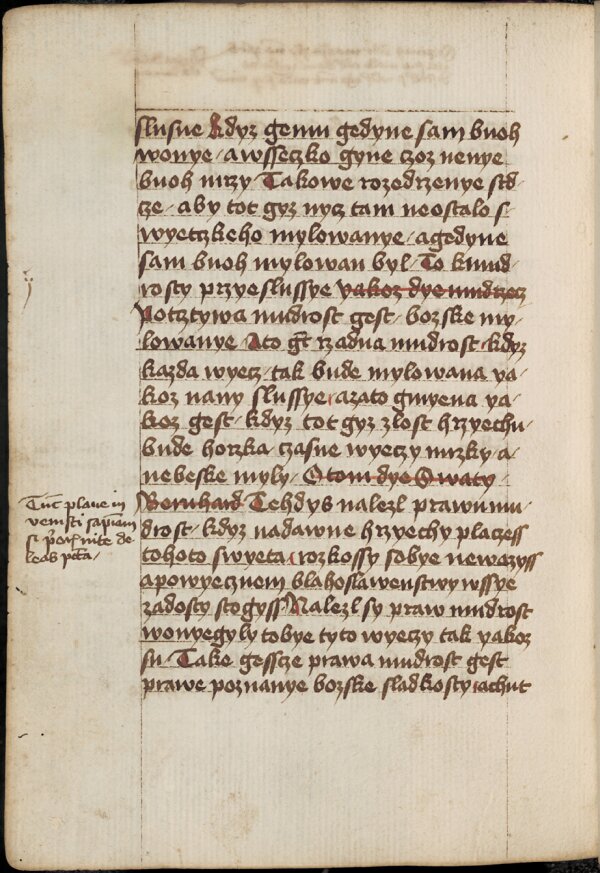 slusne kdyz gemu gedyne sam buoh
wonye / awsseczko gyne czoz nenye
buoh mrzy / Takowe rozedrzenye srd-
cze / aby tot gyz nycz tam neostalo s-
wyetzkeho mylowanye / agedyne
sam buoh mylowan byl / To kmud-
rosty przyeslussye yakoz dye mudrzecz
Potztywa mudrost gest / bozske my-
lowanye / Ato gt rzadna mudrost / kdyz
kazda wyecz / tak bude mylowana ya-
koz nany slussye / azato gmyena ya-
koz gest / kdyz tot gyz zlost hrzyechu
bude horzka / czasne wyeczy mrzky / a-
nebeske myly / Otom dye Swaty
Bernhard Tehdys nalezl prawu mu-
drost / kdyz nadawne hrzyechy placzess
tohoto swyeta / rozkossy sobye newazyss
apowyecznem blahoslawenstwy wssye
zadosty stogyss Nalezl sy praw mudrost
wonyegyly tobye tyto wyeczy tak yakoz
su / Take gessze prawa mudrost gest
prawe poznanye bozske sladkosty / achut
Tuc plane in
venisti sapiam
si
leas pcta /